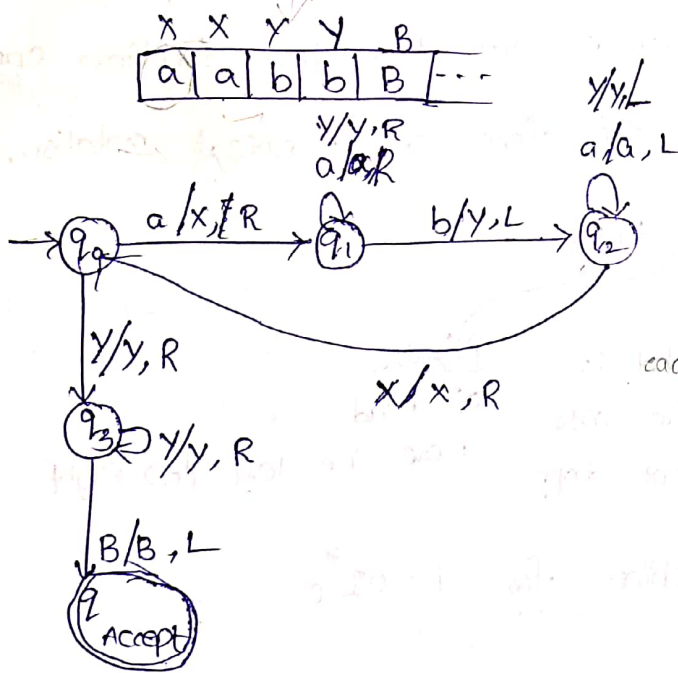 X X Y Y B
a a b b B ---
Y/Y, R
a/a, R
Y/Y, L
a/a, L
a/X, R
b/Y, L
q1
q2
Y/Y, R
X/X, R
q3
Y/Y, R
B/B, L
q
ACCept